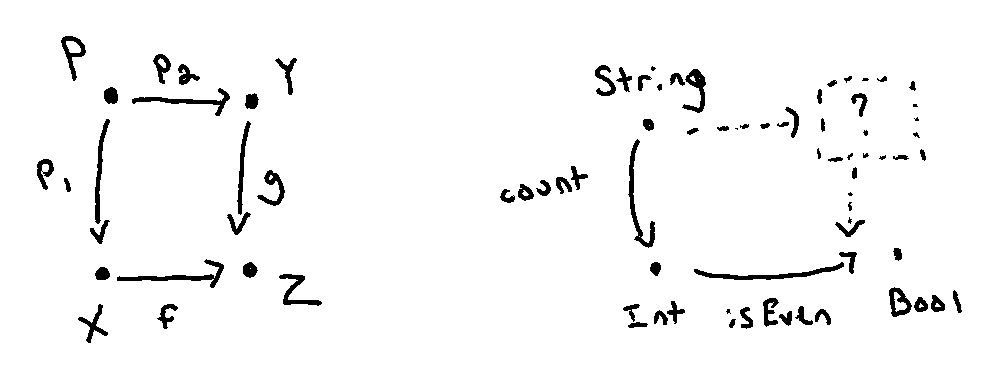 P
p2
Y
p1
g
X
f
Z
String
?
count
Int
isEven
Bool